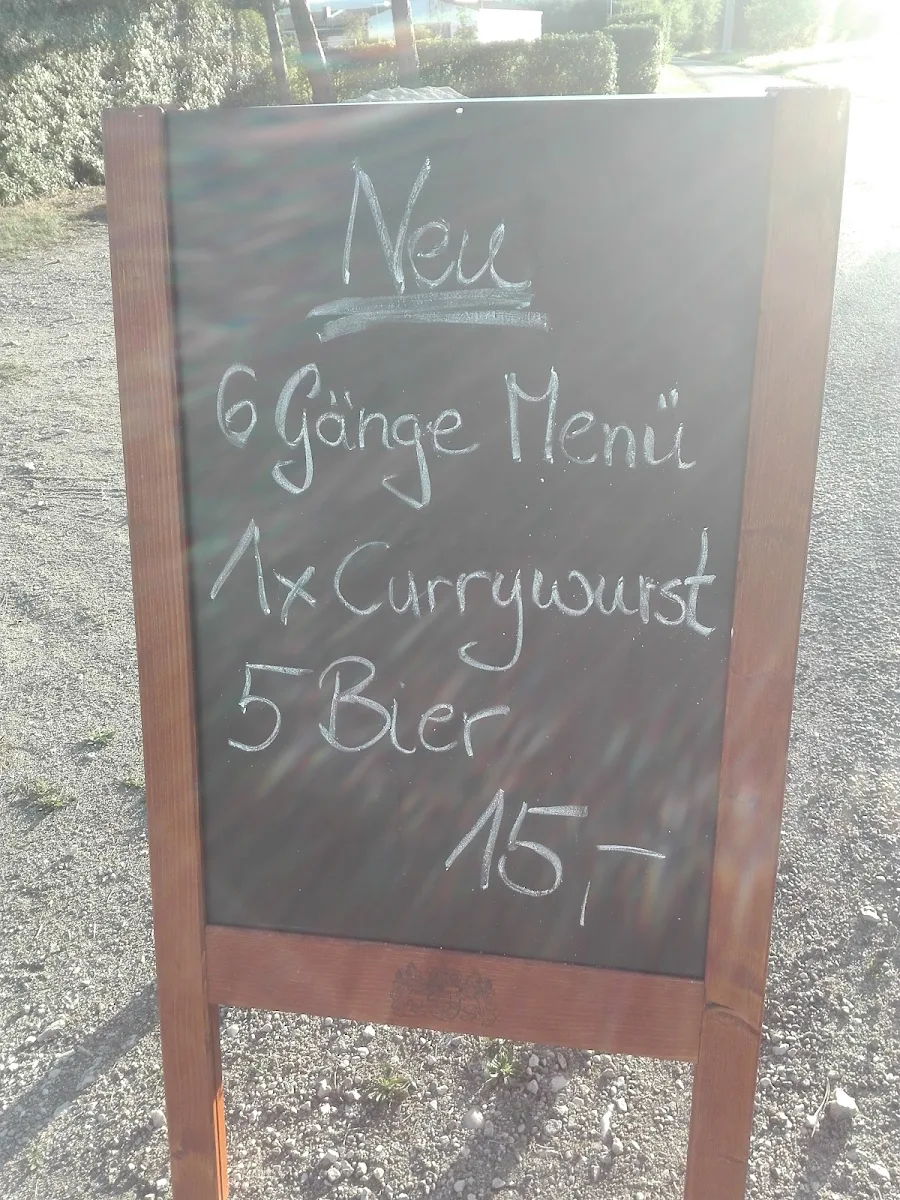 Neu
6 Gänge Menü
1x Currywurst
5 Bier
15,-